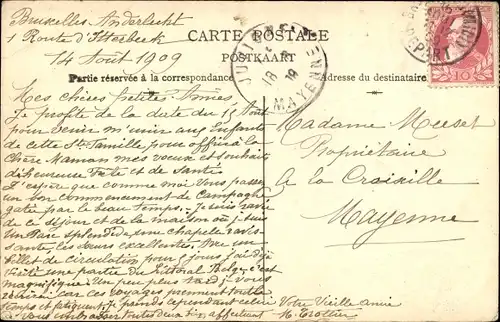 Bruxelles Anderlecht
1 Route d'Itterbeek
14 Août 1909
CARTE POSTALE
POSTKAART
Partie réservée à la correspondance
Adresse du destinataire
MAYENNE
DEPART
10
Mes chères petites Amies,
Je profite de la date du 15 Août
pour venir m'unir aux Enfants
de cette Ste famille pour offrir à la
Chère Maman mes vœux et souhaits
d'heureuse Fête et de Santé
J'espère que comme moi Vous passez
un bon commencement de Campagne
gâtée par le beau Temps. Je suis ravie
de ce séjour et de la maison où je suis
Un Parc splendide une chapelle ravis-
sante les Sœurs excellentes. Avec un
billet de circulation pour 5 jours j'ai déjà
visité une partie du Littoral Belge c'est
magnifique! Un peu plus tard je vous
car ces voyages prennent tout le
temps et Je prends cependant celui
de vous embrasser toutes deux bien affectueuse
Votre Vieille amie
M. Trottier
Madame Messet
Propriétaire
à la Croixille
Mayenne